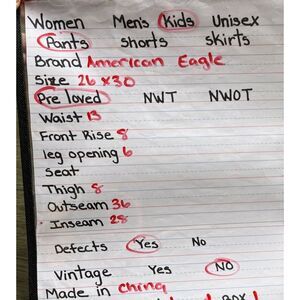 Women Mens Kids Unisex
Pants shorts skirts
Brand American Eagle
Size 26 x 30
Pre loved NWT NWOT
Waist 13
Front Rise 8
leg opening 6
Seat
Thigh 8
Outseam 36
Inseam 28
Defects Yes No
Vintage Yes NO
Made in China